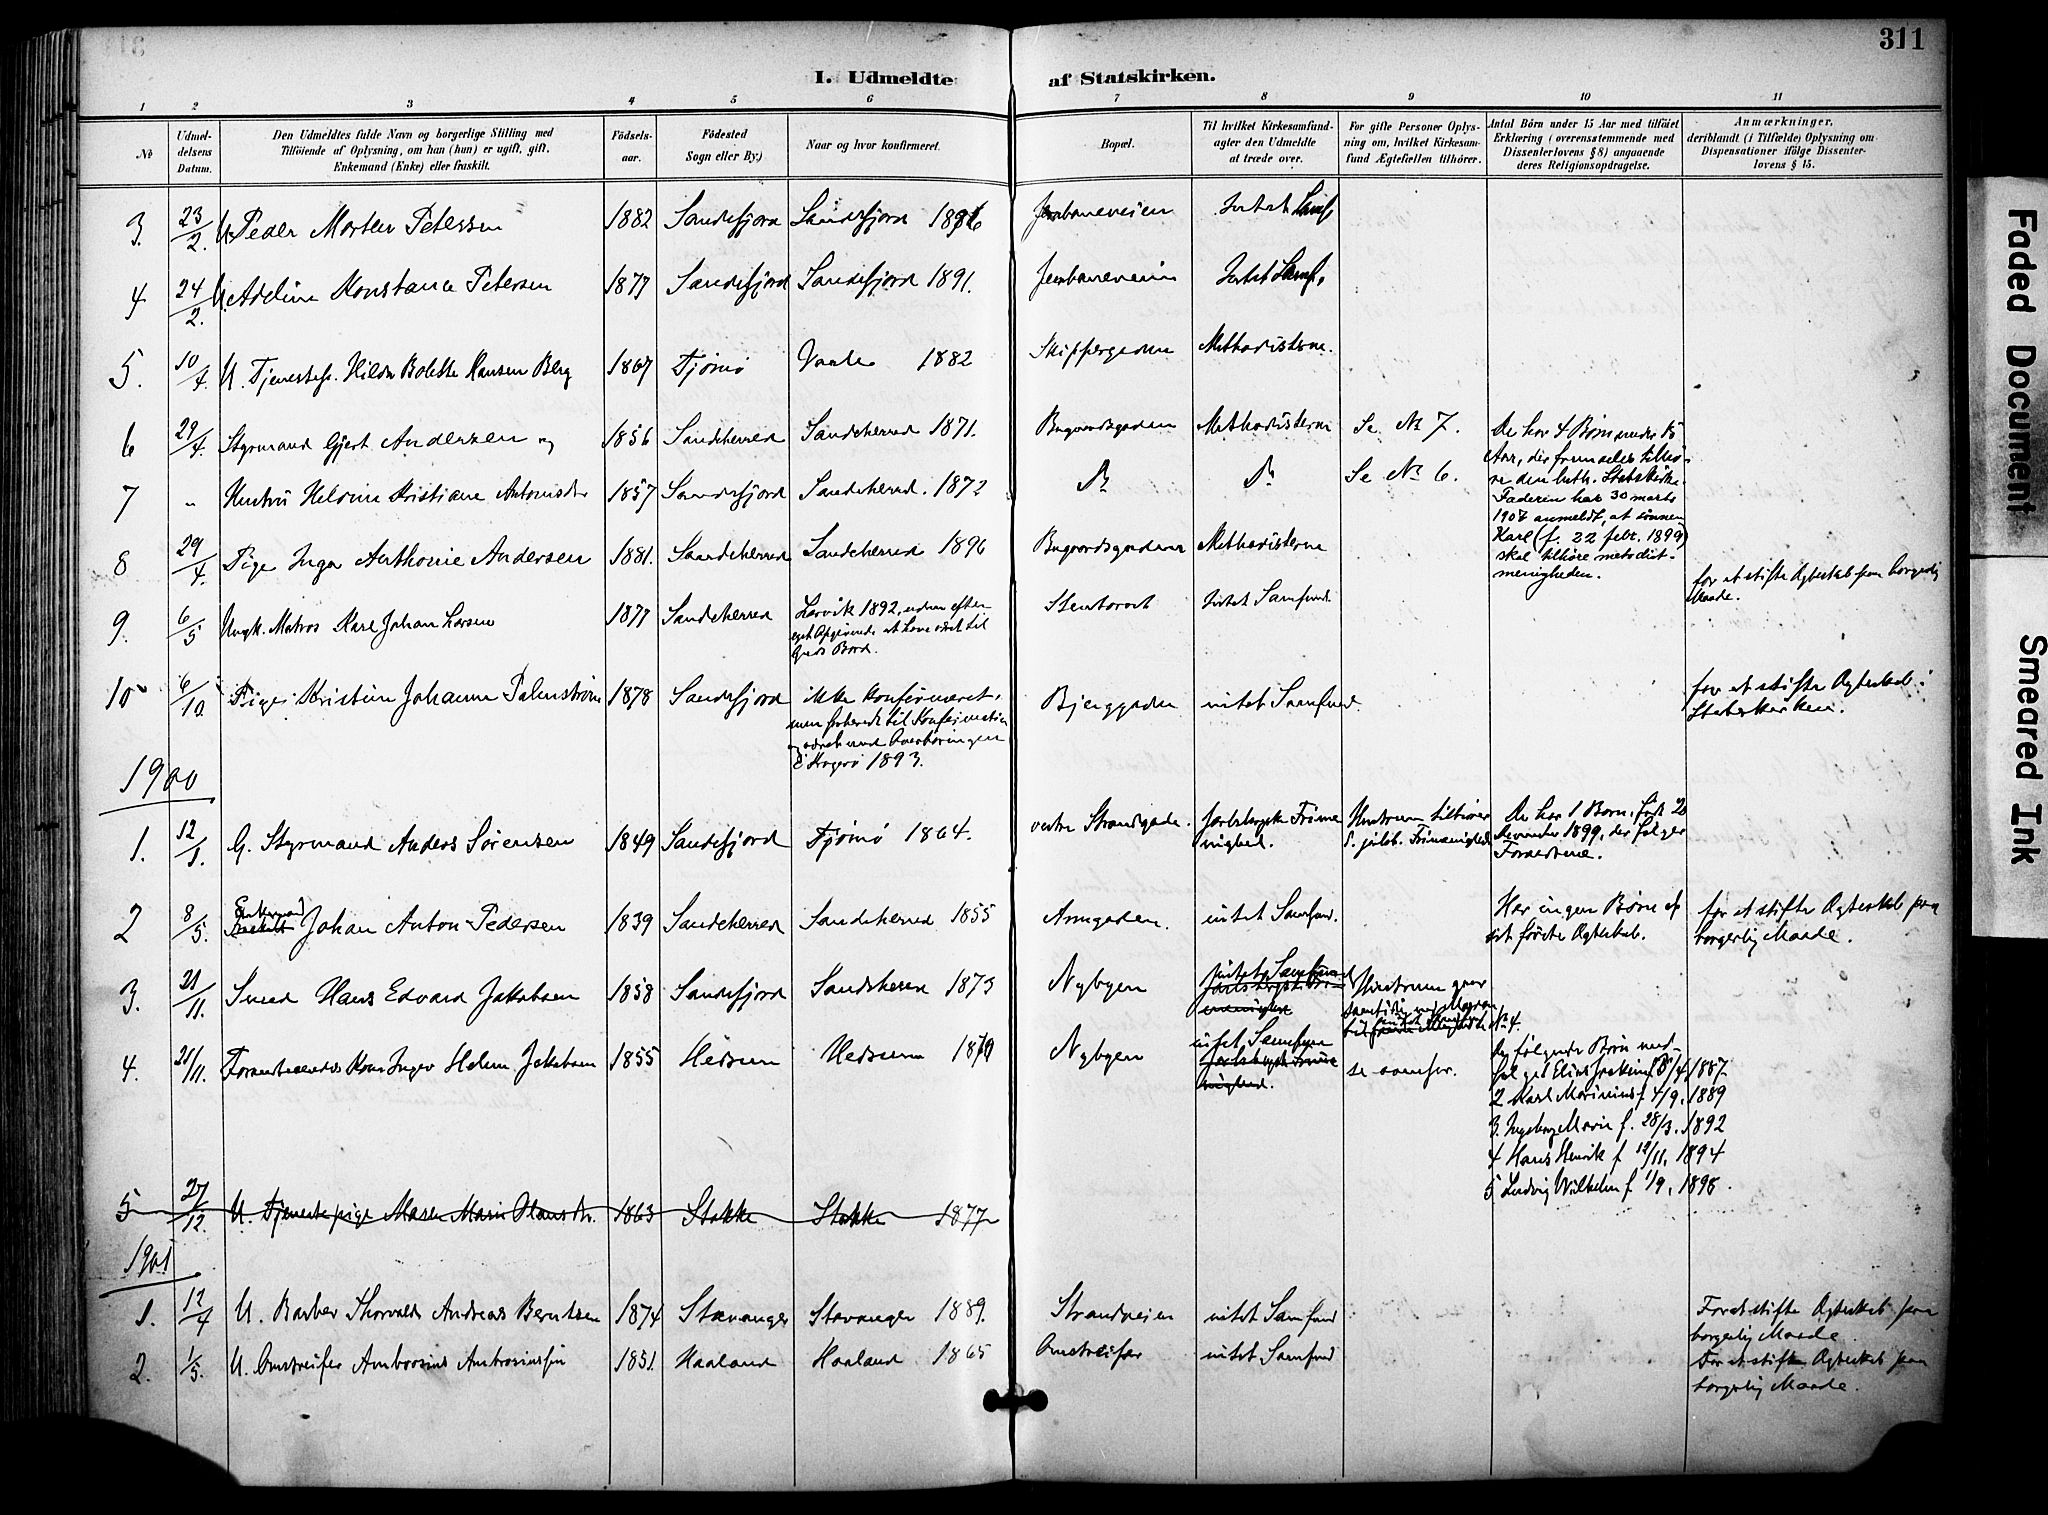 311
I. Udmeldte af Statskirken.
1 2 3 4 5 6 7 8 9 10 11
No
Udmel-
delsens
Datum.
Den Udmeldtes fulde Navn og borgerlige Stilling med
Tilföiende af Oplysning, om han (hun) er ugift, gift,
Enkemand (Enke) eller fraskilt.
Födsels-
aar.
Födested
Sogn eller By.)
Naar og hvor konfirmeret.
Bopæl.
Til hvilket Kirkesamfund-
agter den Udmeldte
at træde over.
For gifte Personer Oplys-
ning om, hvilket Kirkesam-
fund Ægtefællen tilhörer.
Antal Börn under 15 Aar med tilföiet
Erklæring (overensstemmende med
Dissenterlovens § 8) angaaende
deres Religionsopdragelse.
Anmærkninger,
deriblandt (i Tilfælde) Oplysning om
Dispensationer ifölge Dissenter-
lovens § 15.
3. 23/2. U. Peder Morten Petersen 1882 Sandefjord Sandefjord 1896 Jernbaneveien Intet Samf.
4 24/2. U. Adeline Konstance Petersen 1877 Sandefjord Sandefjord 1891. Jernbaneveien Intet Samf.
5. 10/4. U. Tjenestep. Hilda Bolette Hansen Berg 1867 Tjømø Vaale 1882 Skippergaden Methodisterne.
6 29/4. Styrmand Gjert Andersen og 1856 Sandeherred Sandeherred 1871. Bugaardsgaden Methodisterne Se No 7.
De har 4 Børn under 15
Aar, der fremdeles tilhø-
re den luth. Statskirke.
7 " Hustru Helvine Kristiane Antonsdr 1857 Sandefjord Sandeherred. 1872 Do Do Se No 6.
Faderen har 30 marts
1907 anmeldt, at sønnen
Karl (f. 22 febr. 1899)
skal tilhøre metodist-
menigheden.
8 29/4. Pige Inga Anthonie Andersen 1881. Sandeherred Sandeherred 1896 Bugaardsgaden Methodisterne
9. 6/5 Ungk. Matros Karl Johan Larsen 1877 Sandeherred Larvik 1892, uden efter
eget Opgivende at have været til
Guds Bord.
Intet Samfund.
for at stifte Ægteskab paa borgerlig
Maade.
10 6/10. Pige Kristine Johanne Palmstrøm 1878 Sandefjord ikke konfirmeret,
men forberedt til Konfirmation
og været med Overhøringen
i Kragerø 1893.
Bjerggaden intet Samfund
for at stifte Ægteskab i
Statskirken.
1900
1. 12/1. G. Styrmand Anders Sørensen 1849 Sandefjord Tjømø 1864. vestre Strandgade. Jarlsbergske Frime
nighed.
Hustruen tilhører
S. jarlsb. Frimenighed
De har 1 Barn, født 20
December 1899, der følger
Forældrene.
2 8/5. Enkemand Fraskilt Johan Anton Pedersen 1839 Sandeherred Sandeherred 1855 Aaengaden. intet Samfund.
Har ingen Børn af
sit første Ægteskab.
for at stifte Ægteskab paa
borgerlig Maade.
3. 21/11. Smed Hans Edvard Jakobsen 1858 Sandefjord Sandeherred 1873 Nybyen intet Samfund
Jarlsbergske Fri-
menighed
Hustruen gaar
samtidig med Manden
No 4.
4. 21/11. Forannævntes Kone Inger Helene Jakobsen 1855 Hedrum Hedrum 1870 Nybyen intet Samfund
Jarlsbergske Frime
nighed.
se ovenfor.
Og følgende Børn med-
føl get Elias Joakim f. 8/4. 1887.
2 Karl Marinius f. 4/9. 1889
3. Ingeborg Marie f. 28/3. 1892
4 Hans Henrik f 12/11. 1894
5 Ludvig Wilhelm f. 1/9. 1898.
5 27/12. U. Tjenestepige Maren Marie Hansdtr. 1863 Stokke Stokke 1877
1901
1. 12/4 U. Barber Thorvald Andreas Berntsen 1874 Stavanger Stavanger 1889. Strandveien intet Samfund
For at stifte Ægteskab paa
borgerlig Maade.
2. 1/5. U. Omstreifer Ambrosius Ambrosiussen 1851. Haaland Haaland 1865 Omstreifer intet Samfund
For at stifte Ægteskab paa
borgerlig Maade.
Faded Document
Smeared Ink